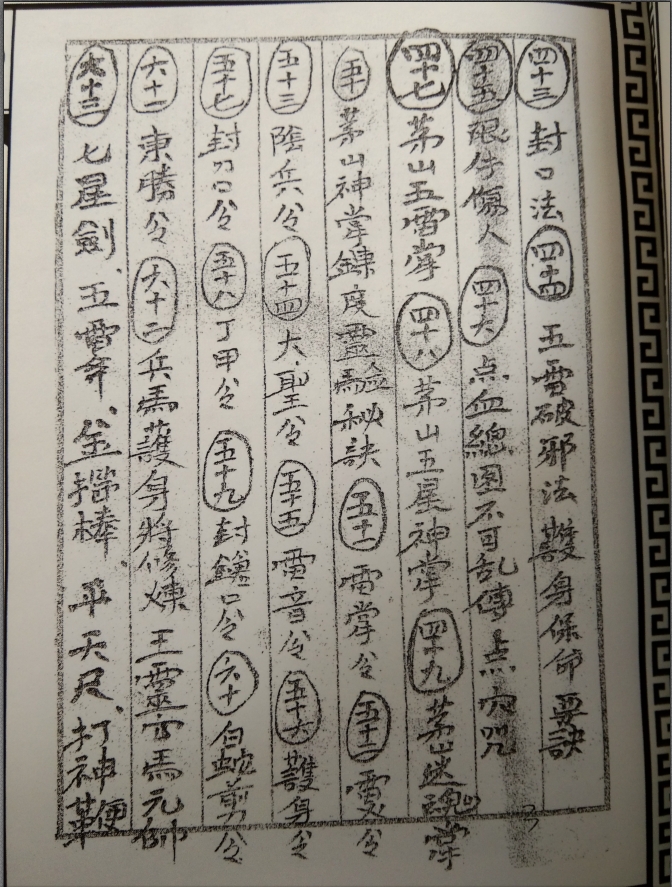 四十三 封口法 四十四 五雷破邪法 護身保命要訣
四十五 眼忤傷人 四十六 点血總圖不可乱傳 点穴咒
四十七 茅山五雷掌 四十八 茅山五星神掌 四十九 茅山迷魂掌
五十 茅山神掌鍊度靈驗秘訣 五十一 雷掌令 五十二 雪令
五十三 陰兵令 五十四 大聖令 五十五 雷音令 五十六 護身令
五十七 封刀口令 五十八 丁甲令 五十九 封鎗口令 六十 白蛇剪刀令
六十一 東勝令 六十二 兵馬護身將修煉 王靈官馬元帥
六十三 七星劍、五雷斧、金 棒、平天尺、打神鞭